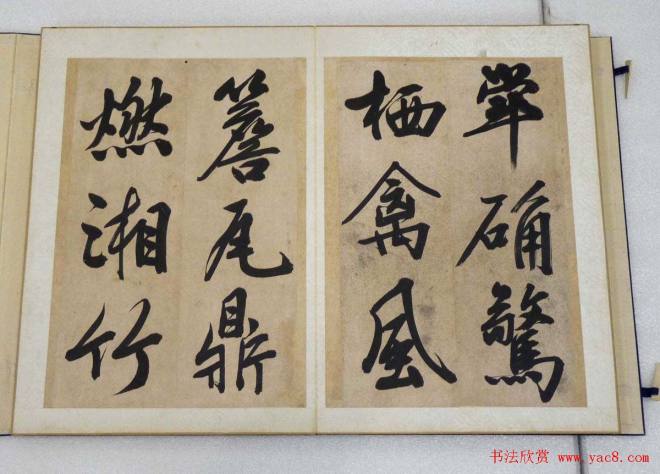 荦确驚
栖禽風
簷尾鼎
燃湘竹
书法欣赏 www.yac8.com